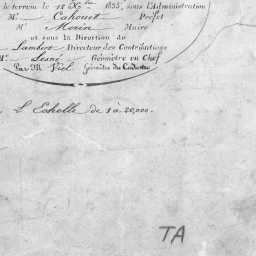 le terrein le 12 Xbre 1835, sous l'Administration
Mr. Cahouet Préfet
Mr. Morin Maire
et sous la Direction de
Lambert Directeur des Contributions
Mr. Lesné Géomètre en Chef
Par Mr Viel Géomètre du Cadastre
L'Echelle de 1 à 20,000.
TA